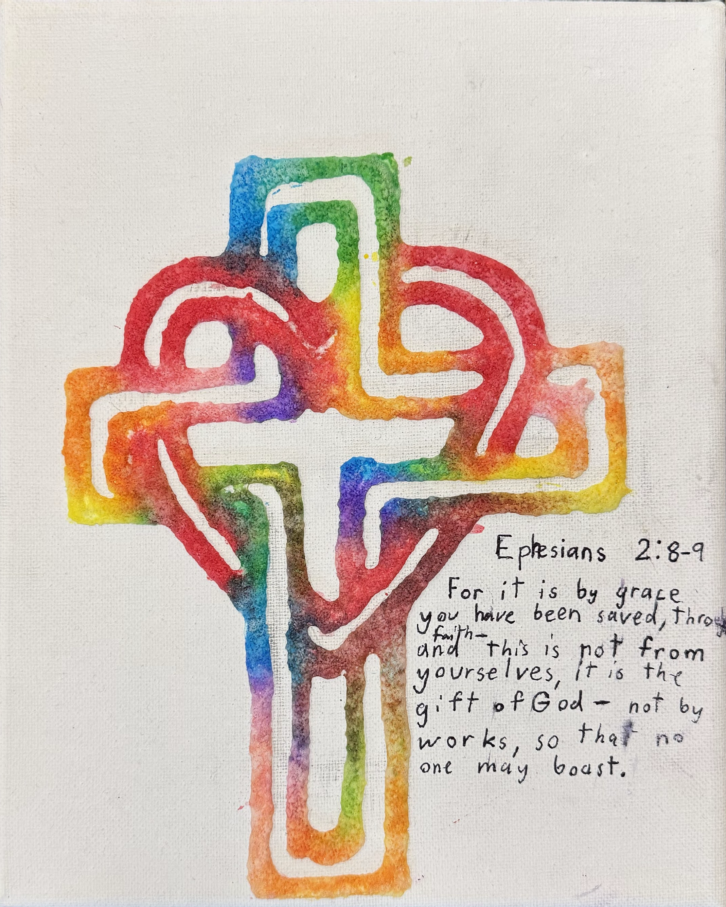 Ephesians 2:8-9
For it is by grace
you have been saved, through
faith-
and this is not from
yourselves, it is the
gift of God - not by
works, so that no
one may boast.